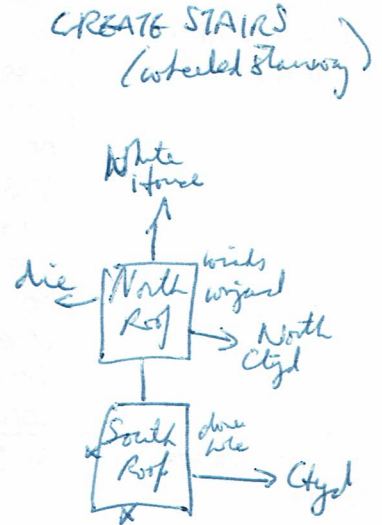 CREATE STAIRS
(wheeled stairway)
White
House
die
North
Roof
winds
wizard
North
Ctyd
South
Roof
down
hole
Ctyd